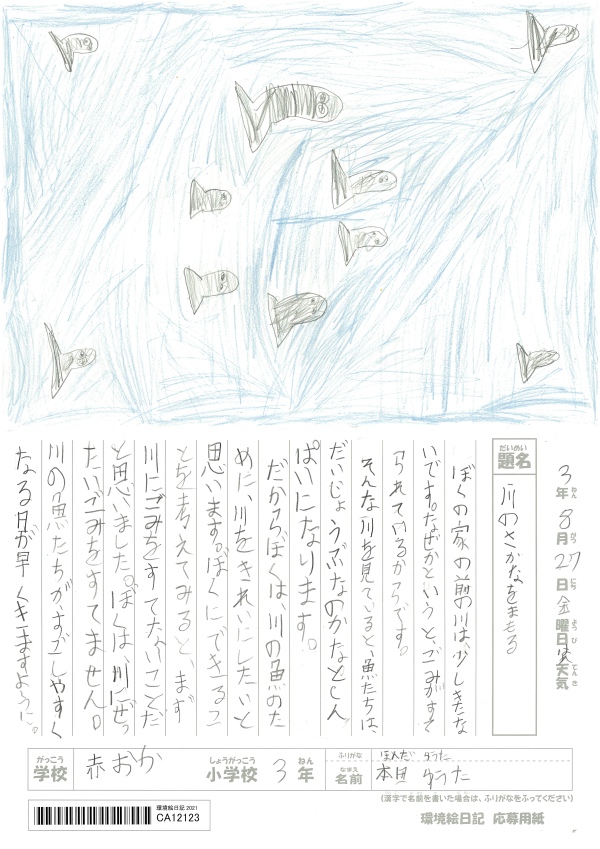 3年ねん 8月がつ 27日にち 金曜日ようび 天気てんき
だいめい
題名
川のさかなをまもる
ぼくの家の前の川は、少しきたな
いです。なぜかというと、ごみがすて
られているからです。
そんな川を見ていると、魚たちは、
だいじょうぶなのかなとしん
ぱいになります。
だからぼくは、川の魚のた
めに、川をきれいにしたいと
思います。ぼくにできるこ
とを考えてみると、まず
川にごみをすてないことだ
と思いました。ぼくは、川にぜっ
たいごみをすてません。
川の魚たちが、すごしやすく
なる日が早くきますように。
がっこう
学校
赤おか
しょうがっこう
小学校
3
ねん
年
ふりがな
なまえ
名前
ほんだ
本田
(漢字で名前を書いた場合は、ふりがなをふってください)
環境絵日記 2021
CA12123
環境絵日記 応募用紙